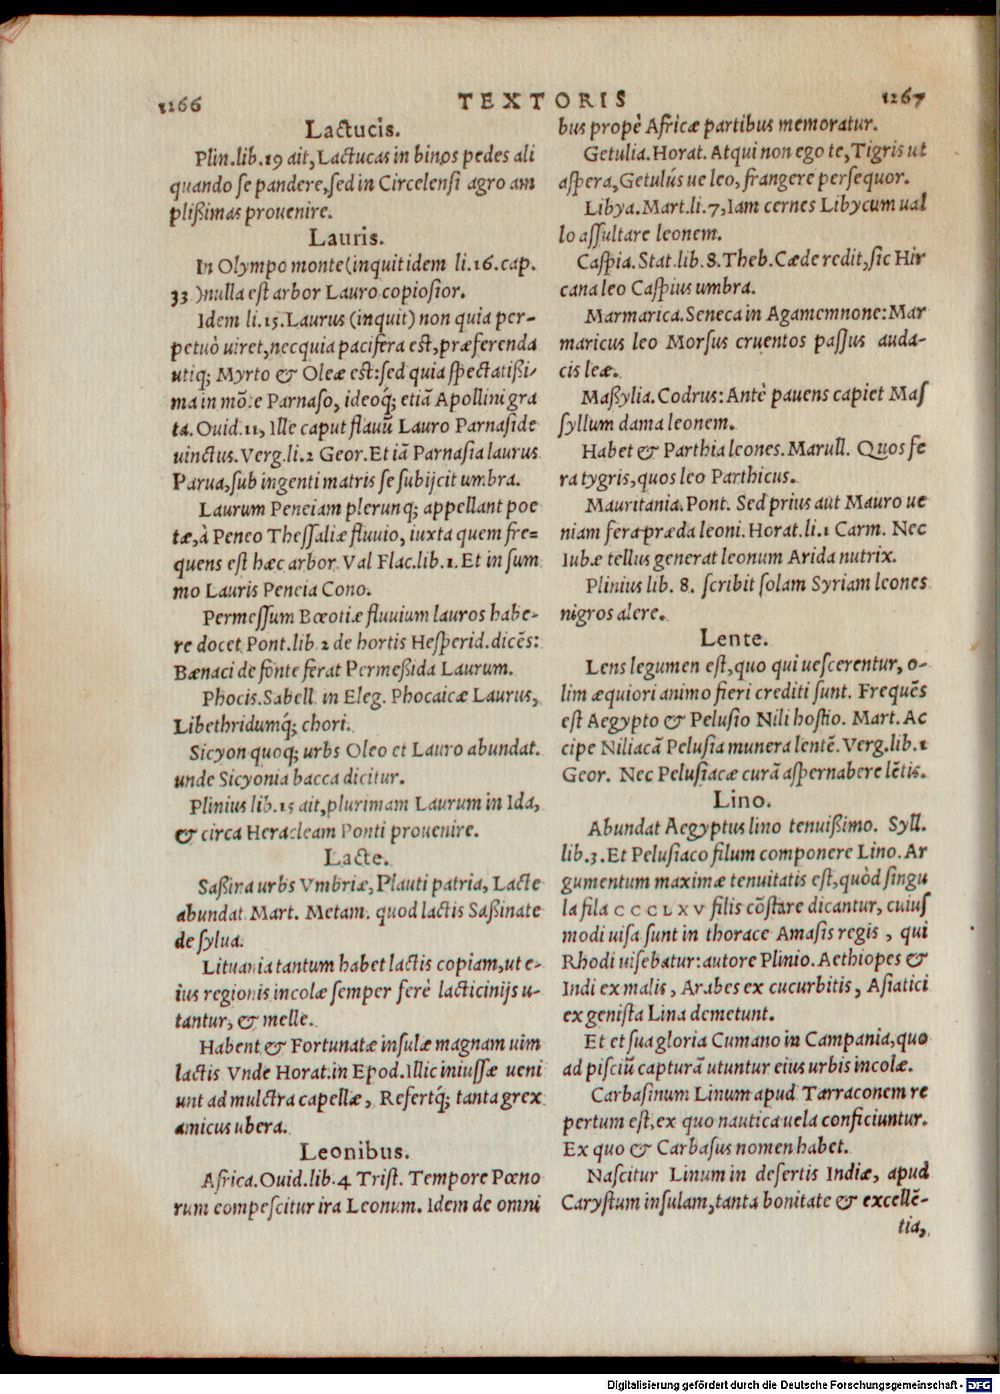 1166
TEXTORIS
1267
Lactucis.
Plin.lib.19 ait, Lactucas in binos pedes ali
quando se pandere, sed in Circelensi agro am
plißimas prouenire.
Lauris.
In Olympo monte (inquit idem li.16.cap.
33 ) nulla est arbor Lauro copiosior.
Idem li.15. Laurus (inquit) non quia per-
petuò uiret, nec quia pacifera est, præferenda
utiq; Myrto & Oleæ est: sed quia spectatißi-
ma in mõte Parnaso, ideoq́; etiã Apollini gra
ta. Ouid.11, Ille caput flauũ Lauro Parnaside
uinctus. Verg.li.2 Geor. Et iã Parnasia laurus
Parua, sub ingenti matris se subijcit umbra.
Laurum Peneiam plerunq; appellant poe
tæ, à Peneo Thessaliæ fluuio, iuxta quem fre=
quens est hæc arbor. Val Flac.lib.1. Et in sum
mo Lauris Peneia Cono.
Permessum Bœotiæ fluuium lauros habe-
re docet Pont.lib.2 de hortis Hesperid. dicẽs:
Bænaci de fonte ferat Permeßida Laurum.
Phocis. Sabell. in Eleg. Phocaicæ Laurus,
Libethridumq́; chori.
Sicyon quoq; urbs Oleo et Lauro abundat.
unde Sicyonia bacca dicitur.
Plinius lib.15 ait, plurimam Laurum in Ida,
& circa Heracleam Ponti prouenire.
Lacte.
Saßira urbs Vmbriæ, Plauti patria, Lacte
abundat. Mart. Metam. quod lactis Saßinate
de sylua.
Lituania tantum habet lactis copiam, ut e-
ius regionis incolæ semper ferè lacticinijs u-
tantur, & melle.
Habent & Fortunatæ insulæ magnam uim
lactis Vnde Horat. in Epod. Illic iniussæ ueni
unt ad mulctra capellæ, Refertq́; tanta grex
amicus ubera.
Leonibus.
Africa. Ouid.lib.4 Trist. Tempore Pœno
rum compescitur ira Leonum. Idem de omni
bus propè Africæ partibus memoratur.
Getulia. Horat. Atqui non ego te, Tigris ut
aspera, Getulús ue leo, frangere persequor.
Libya. Mart.li.7, Iam cernes Libycum ual
lo assultare leonem.
Caspia. Stat.lib. 8. Theb. Cæde redit, sic Hir
cana leo Caspius umbra.
Marmarica. Seneca in Agamemnone: Mar
maricus leo Morsus cruentos passus auda-
cis leæ.
Maßylia. Codrus: Antè pauens capiet Mas
syllum dama leonem.
Habet & Parthia leones. Marull. Quos fe
ra tygris, quos leo Parthicus.
Mauritania. Pont. Sed prius aut Mauro ue
niam fera præda leoni. Horat.li.1 Carm. Nec
Iubæ tellus generat leonum Arida nutrix.
Plinius lib. 8. scribit solam Syriam leones
nigros alere.
Lente.
Lens legumen est, quo qui uescerentur, o-
lim æquiori animo fieri crediti sunt. Frequẽs
est Aegypto & Pelusio Nili hostio. Mart. Ac
cipe Niliacã Pelusia munera lentẽ. Verg.lib.1
Geor. Nec Pelusiacæ curã aspernabere lẽtis.
Lino.
Abundat Aegyptus lino tenuißimo. Syll.
lib.3. Et Pelusiaco filum componere Lino. Ar
gumentum maximæ tenuitatis est, quòd singu
la fila CCCLXV filis cõstare dicantur, cuius
modi uisa sunt in thorace Amasis regis , qui
Rhodi uisebatur: autore Plinio. Aethiopes &
Indi ex malis, Arabes ex cucurbitis, Asiatici
ex genista Lina demetunt.
Et et sua gloria Cumano in Campania, quo
ad pisciũ capturã utuntur eius urbis incolæ.
Carbasinum Linum apud Tarraconem re
pertum est, ex quo nautica uela conficiuntur.
Ex quo & Carbasus nomen habet.
Nascitur Linum in desertis Indiæ, apud
Carystum insulam, tanta bonitate & excellẽ-
tia,
Digitalisierung gefördert durch die Deutsche Forschungsgemeinschaft - DFG